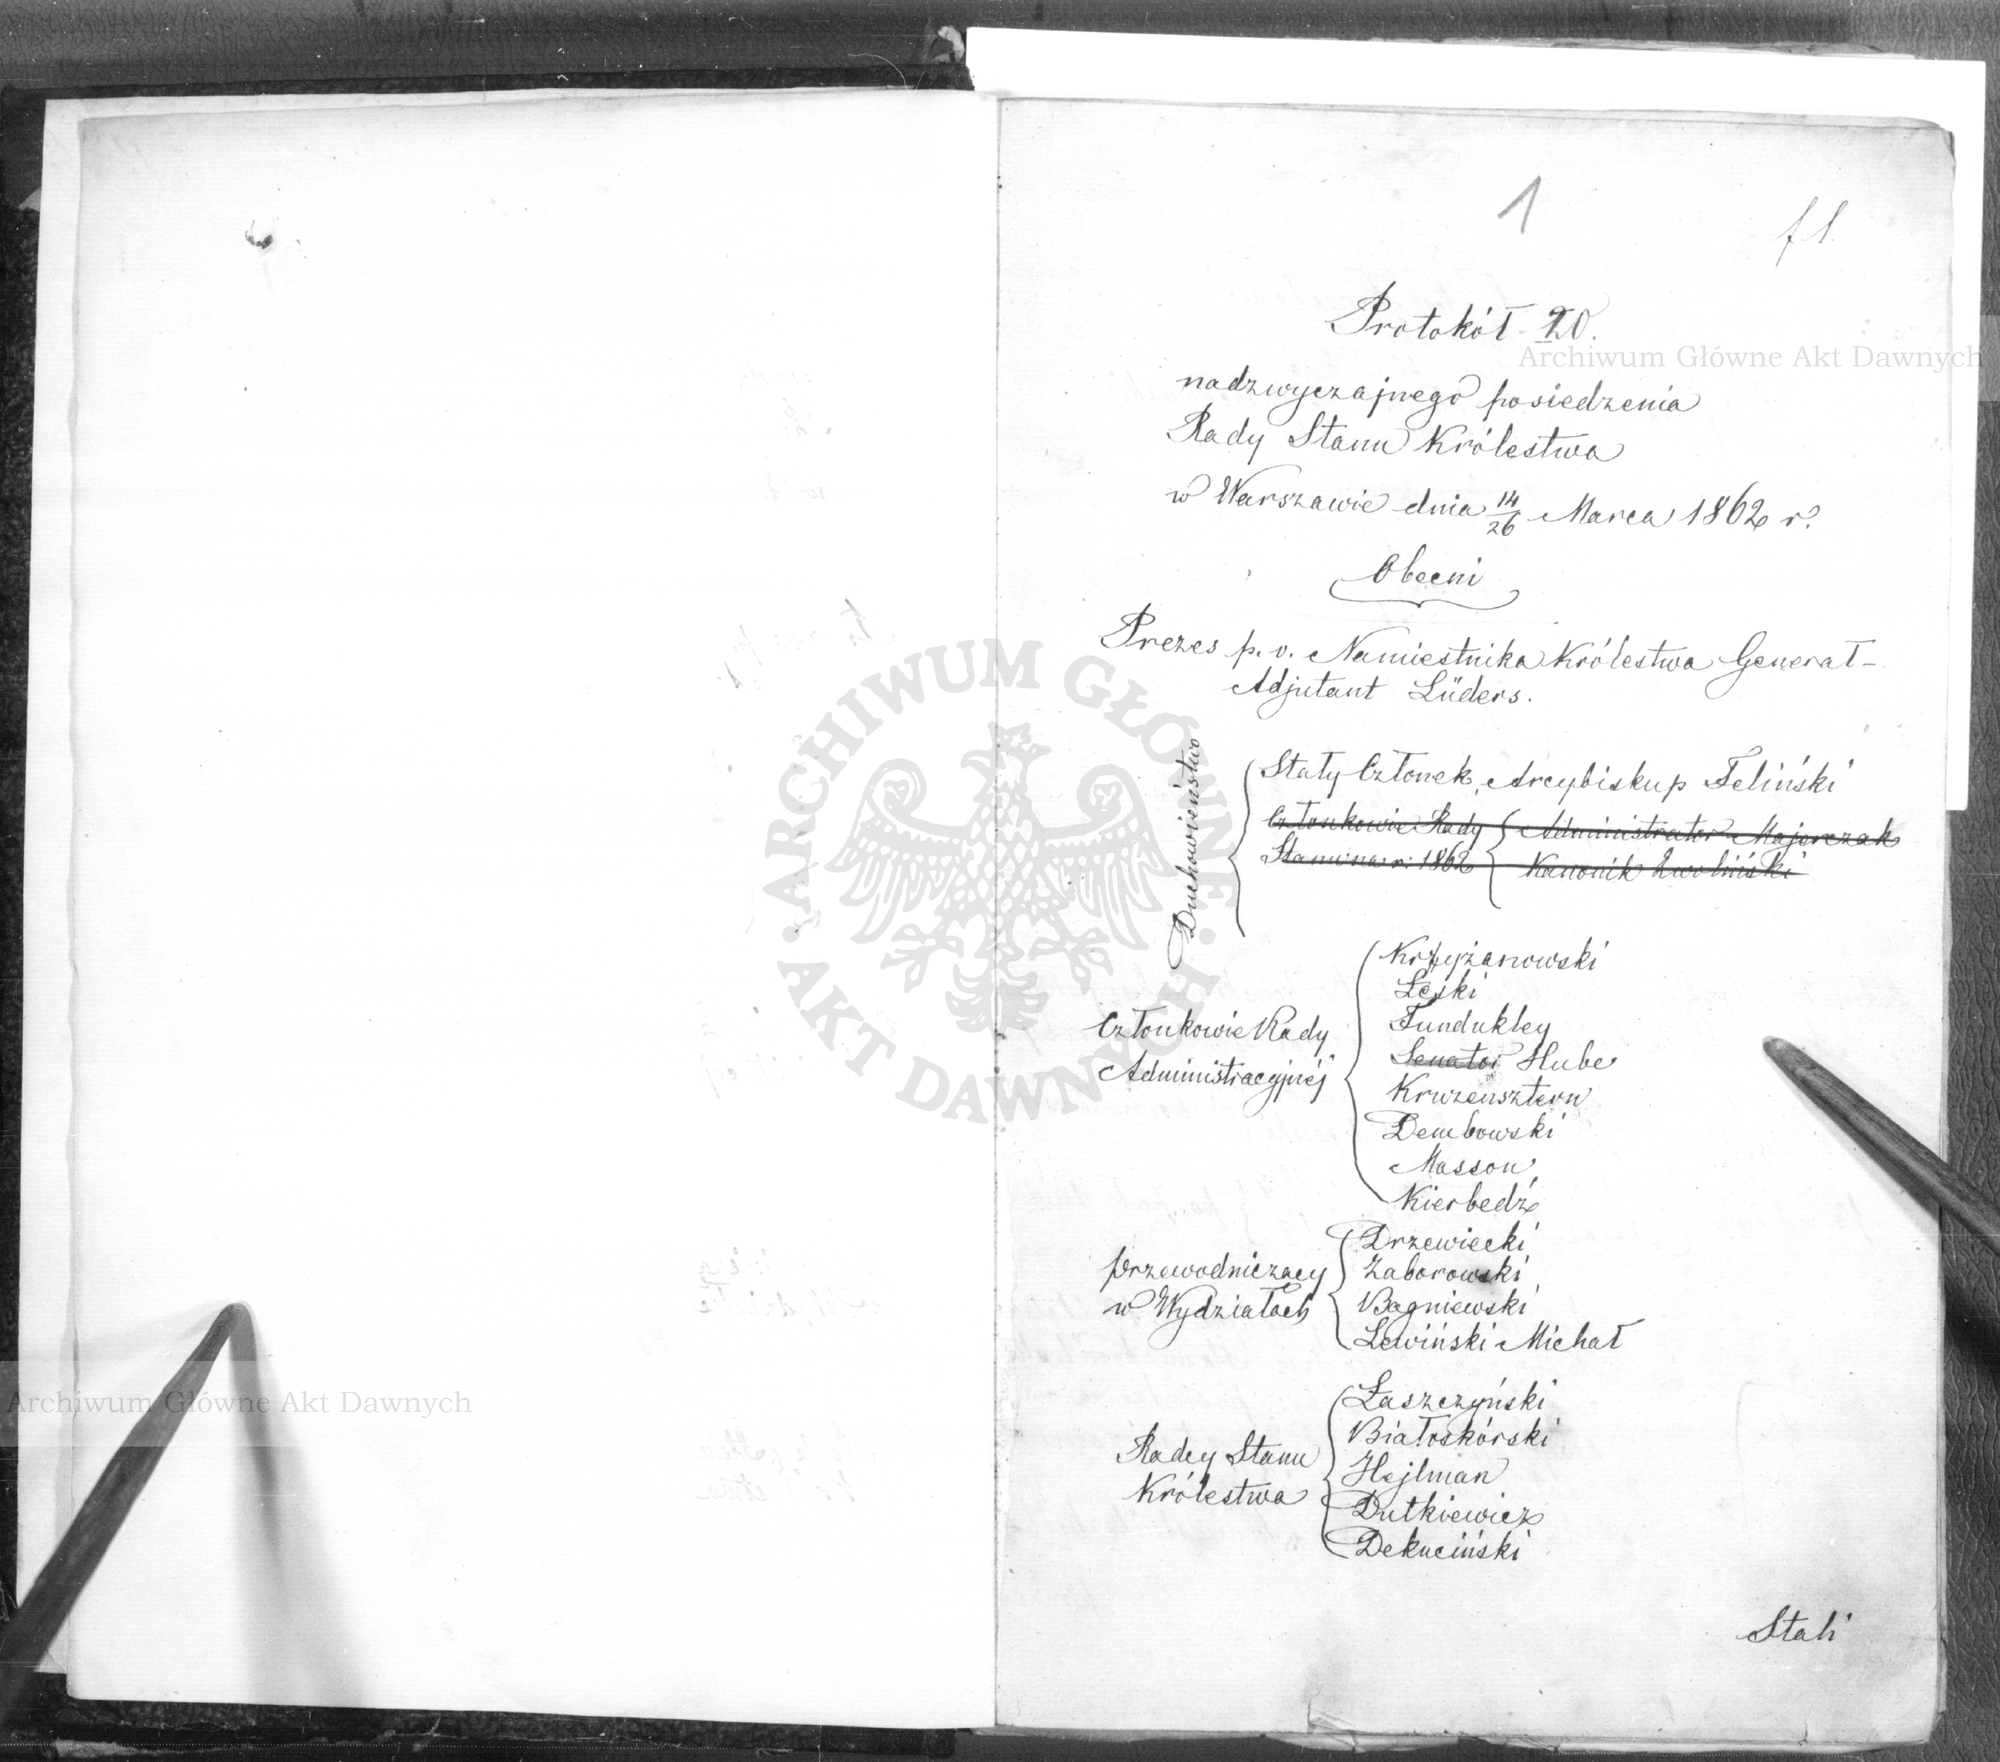 1
f 1.
Protokół 20.
nadzwyczajnego posiedzenia
Rady Stanu Królestwa
w Warszawie dnia 14/26 Marca 1862 r.
Obecni
Prezes p. o. Namiestnika Królestwa Generał-
Adjutant Lüders.
Duchowieństwo
Stały Członek, Arcybiskup Feliński
Członkowie Rady
Stanu na r. 1862
Administrator Majerczak
Kanonik Zwoliński
Członkowie Rady
Administracyjnéj
Krzyżanowski
Łęski
Fundukley
Senator Hube
Kruzensztern
Dembowski
Masson
Kierbedź
Przewodniczący
w Wydziałach
Drzewiecki
Zaborowski
Bagniewski
Lewiński Michał
Radcy Stanu
Królestwa
Łaszczyński
Białoskórski
Hejlman
Dutkiewicz
Dekuciński
Stali
Archiwum Główne Akt Dawnych
Archiwum Główne Akt Dawnych
ARCHIWUM GŁÓWNE
AKT DAWNYCH